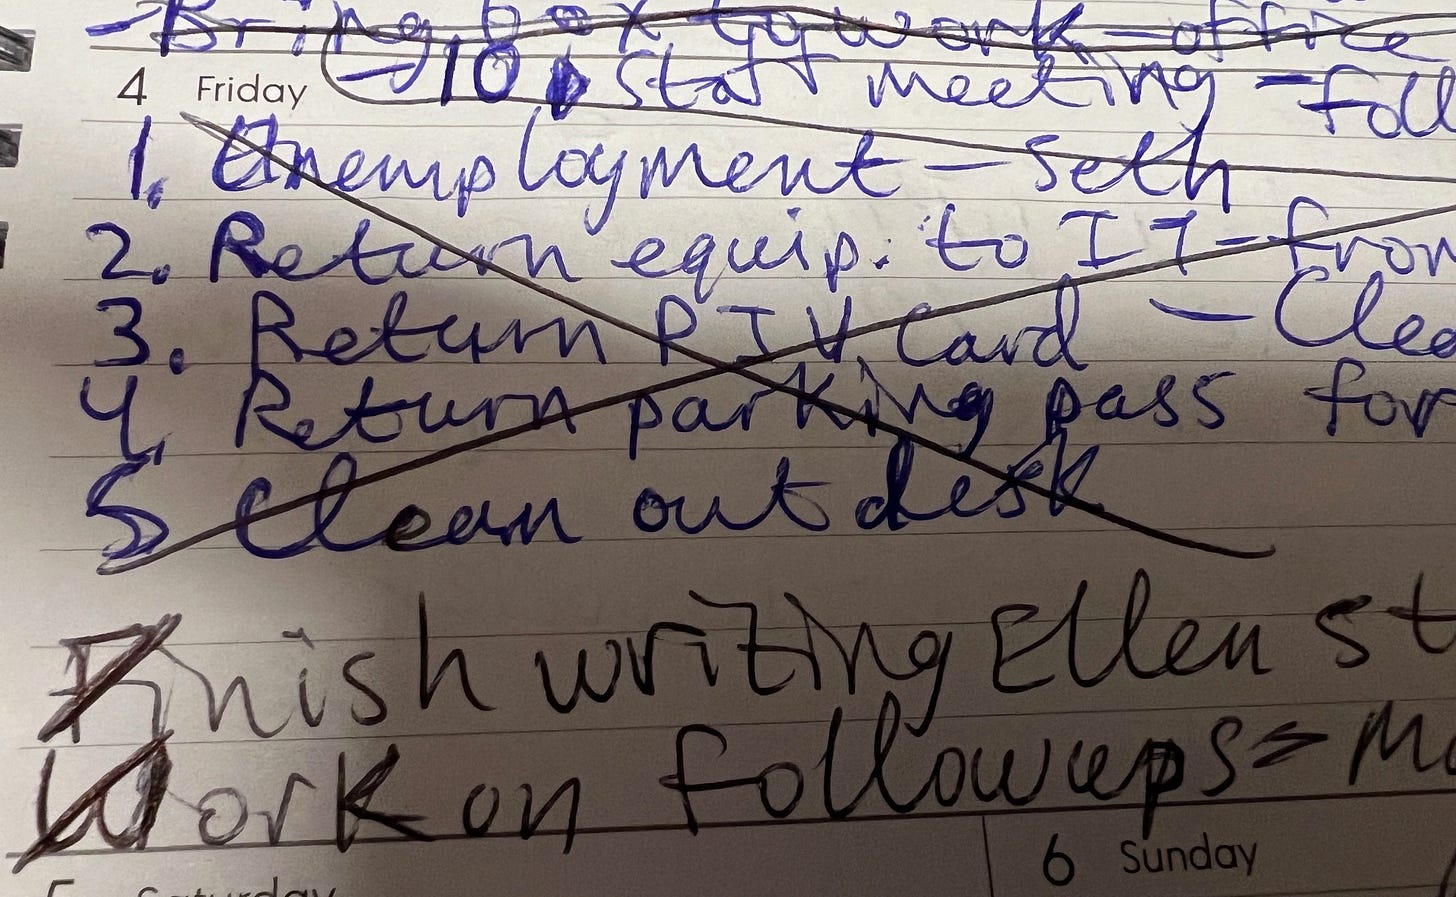 - Bring box to work - office
→ 10 Staff meeting - foll
4 Friday
1. Unemployment - Seth
2. Return equip. to IT - from
3. Return PIV Card - Clea
4. Return parking pass for
5 Clean out desk
Finish writing Ellen st
Work on followups = M
5 Saturday
6 Sunday